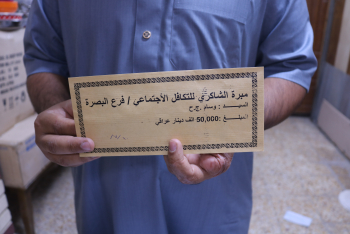 مبرة الشاكري للتكافل الأجتماعي / فرع البصرة
السيد : وسام .ج.ح
المبلغ :50,000 الف دينار عراقي